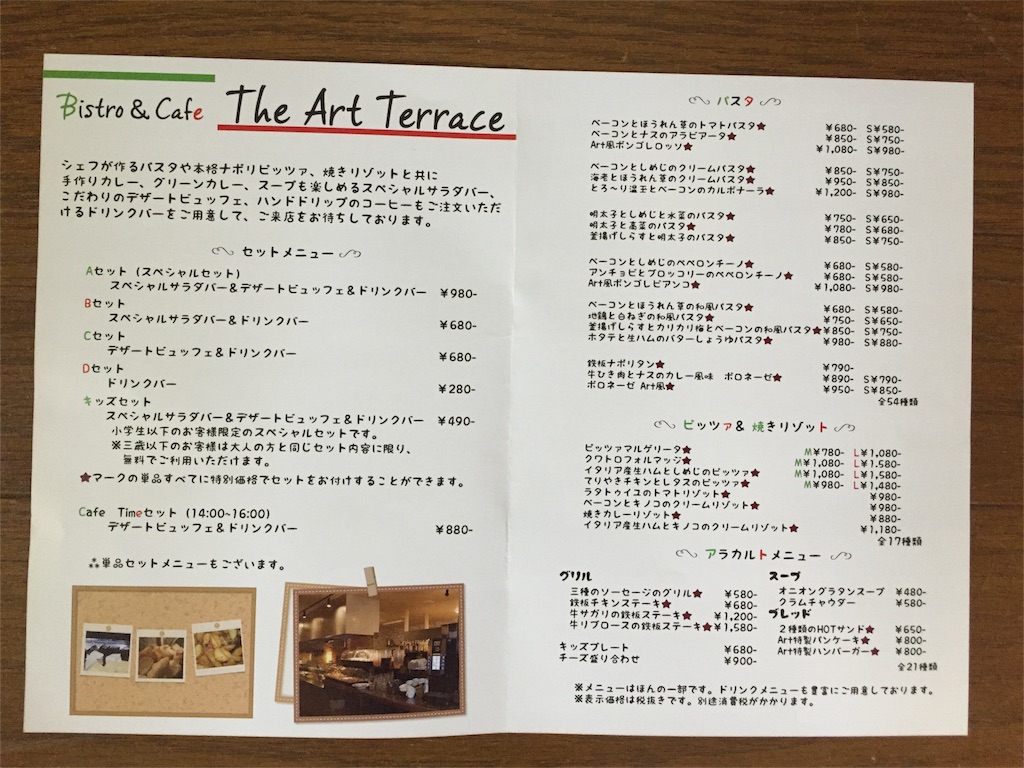 Bistro & Cafe The Art Terrace
シェフが作るパスタや本格ナポリピッツァ、焼きリゾットと共に
手作りカレー、グリーンカレー、スープも楽しめるスペシャルサラダバー、
こだわりのデザートビュッフェ、ハンドドリップのコーヒーもご注文いただ
けるドリンクバーをご用意して、ご来店をお待ちしております。
セットメニュー
Aセット（スペシャルセット）
スペシャルサラダバー&デザートビュッフェ&ドリンクバー ¥980-
Bセット
スペシャルサラダバー&ドリンクバー ¥680-
Cセット
デザートビュッフェ&ドリンクバー ¥680-
Dセット
ドリンクバー ¥280-
キッズセット
スペシャルサラダバー&デザートビュッフェ&ドリンクバー ¥490-
小学生以下のお客様限定のスペシャルセットです。
※三歳以下のお客様は大人の方と同じセット内容に限り、
無料でご利用いただけます。
★マークの単品すべてに特別価格でセットをお付けすることができます。
Cafe Timeセット (14:00~16:00)
デザートビュッフェ&ドリンクバー ¥880-
⁂単品セットメニューもございます。
パスタ
ベーコンとほうれん草のトマトパスタ★ ¥680- S¥580-
ベーコンとナスのアラビアータ★ ¥850- S¥750-
Art風ボンゴレロッソ★ ¥1,080- S¥980-
ベーコンとしめじのクリームパスタ★ ¥850- S¥750-
海老とほうれん草のクリームパスタ★ ¥950- S¥850-
とろ〜り温玉とベーコンのカルボナーラ★ ¥1,200- S¥980-
明太子としめじと水菜のパスタ★ ¥750- S¥650-
明太子と高菜のパスタ★ ¥780- S¥680-
釜揚げしらすと明太子のパスタ★ ¥850- S¥750-
ベーコンとしめじのペペロンチーノ★ ¥680- S¥580-
アンチョビとブロッコリーのペペロンチーノ★ ¥680- S¥580-
Art風ボンゴレビアンコ★ ¥1,080- S¥980-
ベーコンとほうれん草の和風パスタ★ ¥680- S¥580-
地鶏と白ねぎの和風パスタ★ ¥750- S¥650-
釜揚げしらすとカリカリ梅とベーコンの和風パスタ★ ¥850- S¥750-
ホタテと生ハムのバターしょうゆパスタ★ ¥980- S¥880-
鉄板ナポリタン★ ¥790-
牛ひき肉とナスのカレー風味 ボロネーゼ★ ¥890- S¥790-
ボロネーゼ Art風★ ¥950- S¥850-
全54種類
ピッツァ& 焼きリゾット
ピッツァマルゲリータ★ M¥780- L¥1,080-
クワトロフォルマッジ★ M¥1,080- L¥1,580-
イタリア産生ハムとしめじのピッツァ★ M¥1,080- L¥1,580-
てりやきチキンとレタスのピッツァ★ M¥980- L¥1,480-
ラタトゥイユのトマトリゾット★ ¥980-
ベーコンとキノコのクリームリゾット★ ¥980-
焼きカレーリゾット★ ¥880-
イタリア産生ハムとキノコのクリームリゾット★ ¥1,180-
全17種類
アラカルトメニュー
グリル
三種のソーセージのグリル★ ¥580-
鉄板チキンステーキ★ ¥680-
牛サガリの鉄板ステーキ★ ¥1,200-
牛リブロースの鉄板ステーキ★ ¥1,580-
キッズプレート ¥680-
チーズ盛り合わせ ¥900-
スープ
オニオングラタンスープ ¥480-
クラムチャウダー ¥580-
ブレッド
２種類のHOTサンド★ ¥650-
Art特製パンケーキ★ ¥800-
Art特製ハンバーガー★ ¥800-
全21種類
※メニューはほんの一部です。ドリンクメニューも豊富にご用意しております。
※表示価格は税抜きです。別途消費税がかかります。